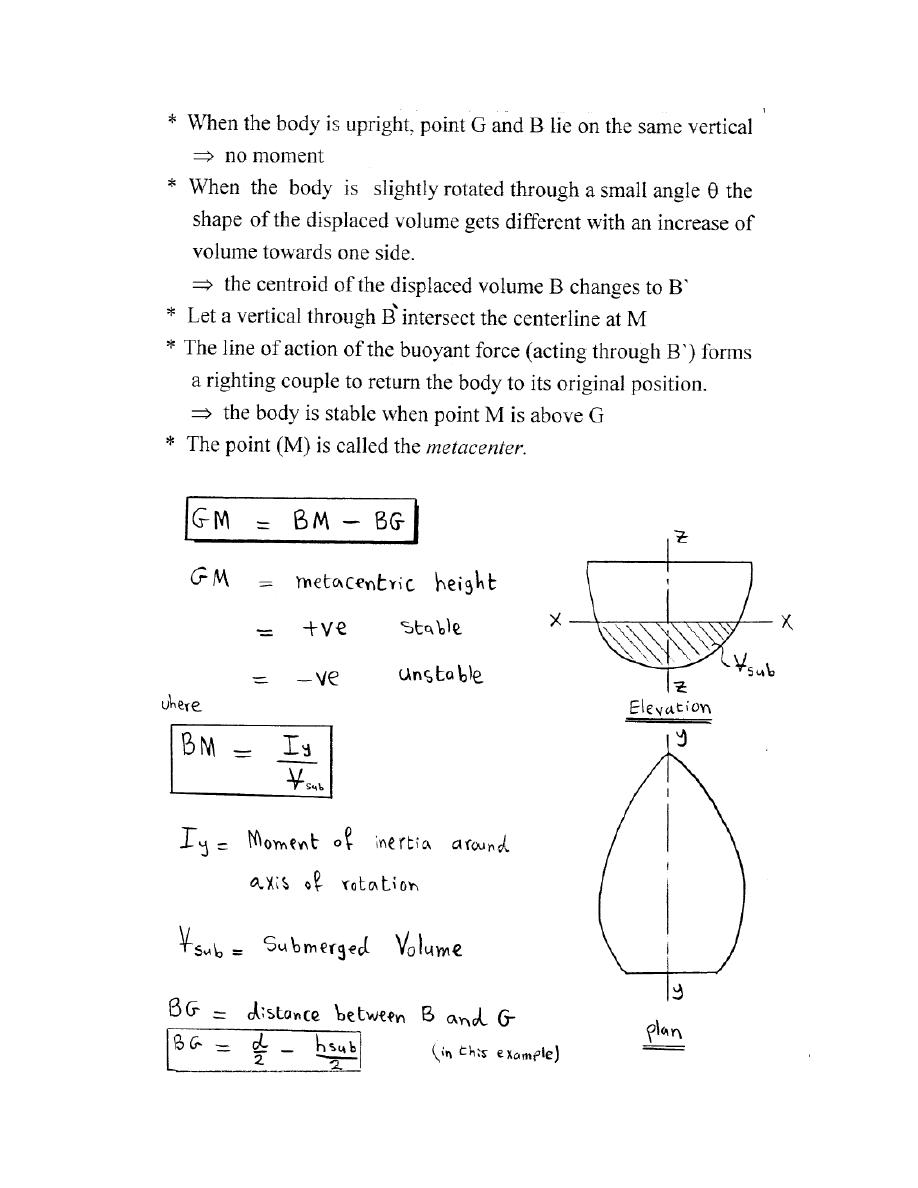 * When the body is upright, point G and B lie on the same vertical
⇒ no moment
* When the body is slightly rotated through a small angle θ the
shape of the displaced volume gets different with an increase of
volume towards one side.
⇒ the centroid of the displaced volume B changes to B`
* Let a vertical through B` intersect the centerline at M
* The line of action of the buoyant force (acting through B`) forms
a righting couple to return the body to its original position.
⇒ the body is stable when point M is above G
* The point (M) is called the metacenter.
GM = BM - BG
GM = metacentric height
= +ve stable
= -ve unstable
where
BM = Iy / V̶sub
Iy = Moment of inertia around
axis of rotation
V̶sub = Submerged Volume
BG = distance between B and G
BG = d/2 - hsub/2 (in this example)
z
x x
V̶sub
z
Elevation
y
y
plan